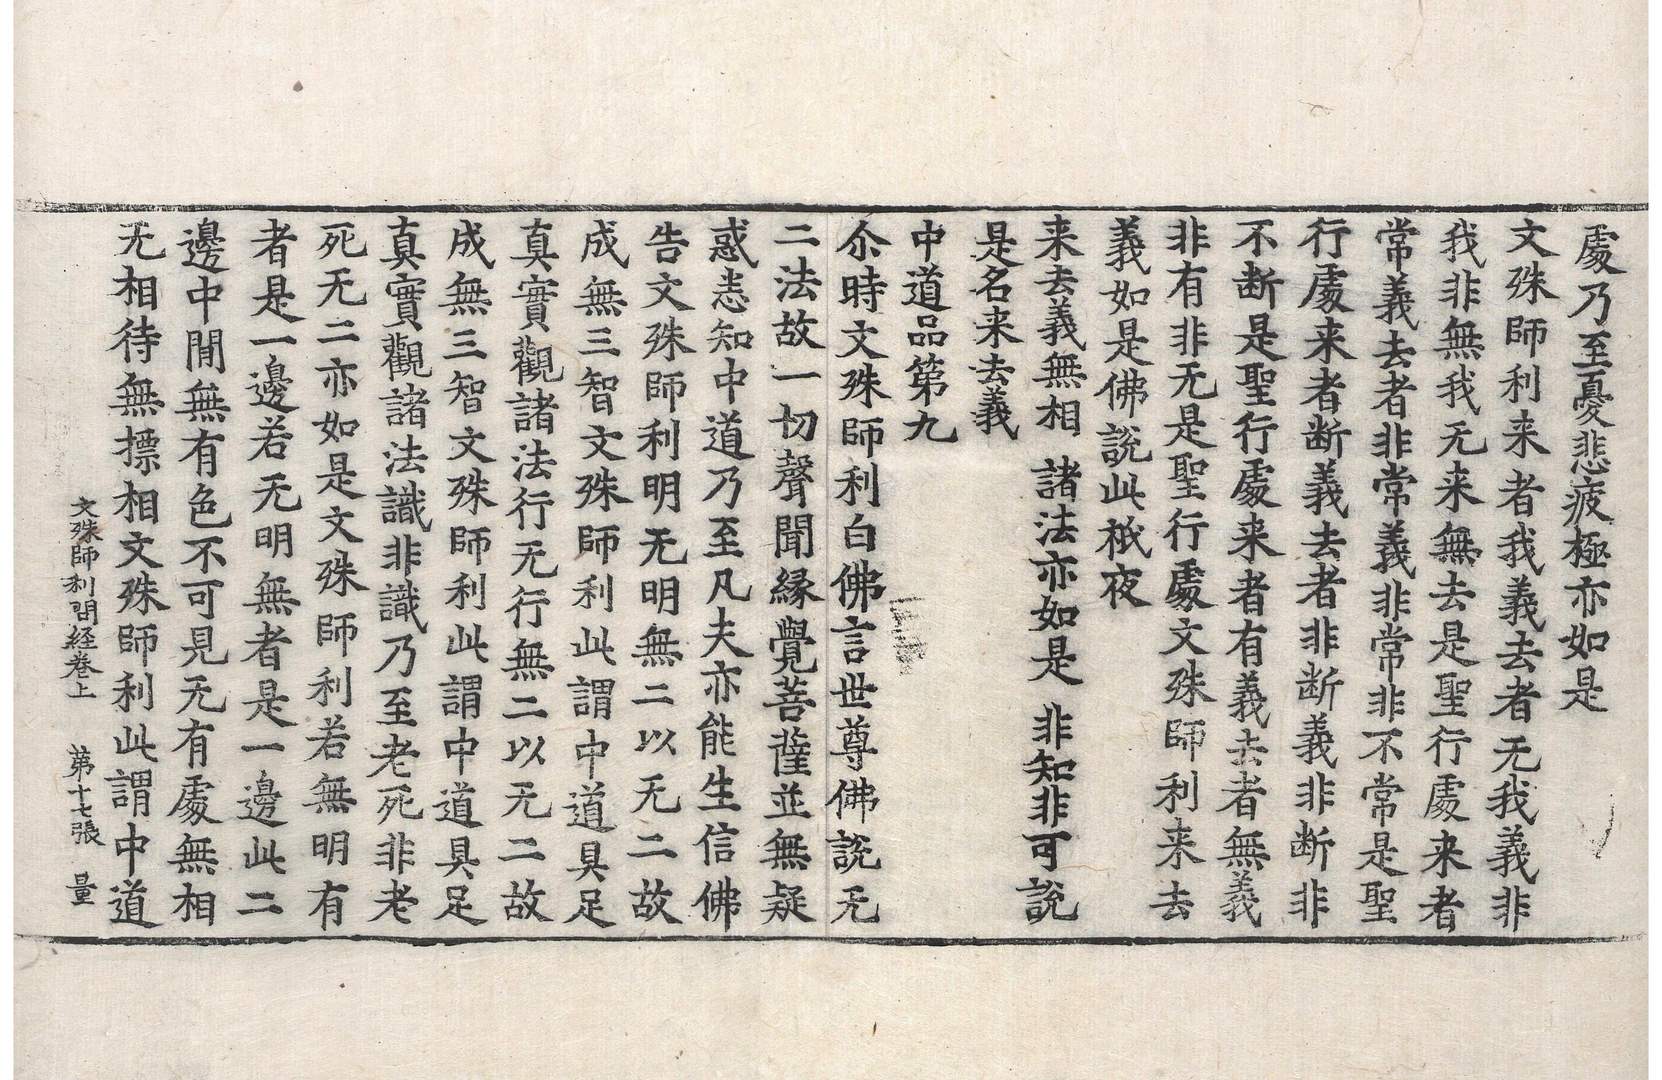 處乃至憂悲疲極亦如是
文殊師利来者我義去者无我義非
我非無我无来無去是聖行處来者
常義去者非常義非常非不常是聖
行處来者断義去者非断義非断非
不断是聖行處来者有義去者無義
非有非无是聖行處文殊師利来去
義如是佛說此祇夜
来去義無相 諸法亦如是 非知非可說
是名来去義
中道品第九
尒時文殊師利白佛言世尊佛說无
二法故一切聲聞縁覺菩薩並無疑
惑恙知中道乃至凡夫亦能生信佛
告文殊師利明无明無二以无二故
成無三智文殊師利此謂中道具足
真實觀諸法行无行無二以无二故
成無三智文殊師利此謂中道具足
真實觀諸法識非識乃至老死非老
死无二亦如是文殊師利若無明有
者是一邊若无明無者是一邊此二
邊中間無有色不可見无有處無相
无相待無摽相文殊師利此謂中道
文殊師利問経卷上 第十七張 量